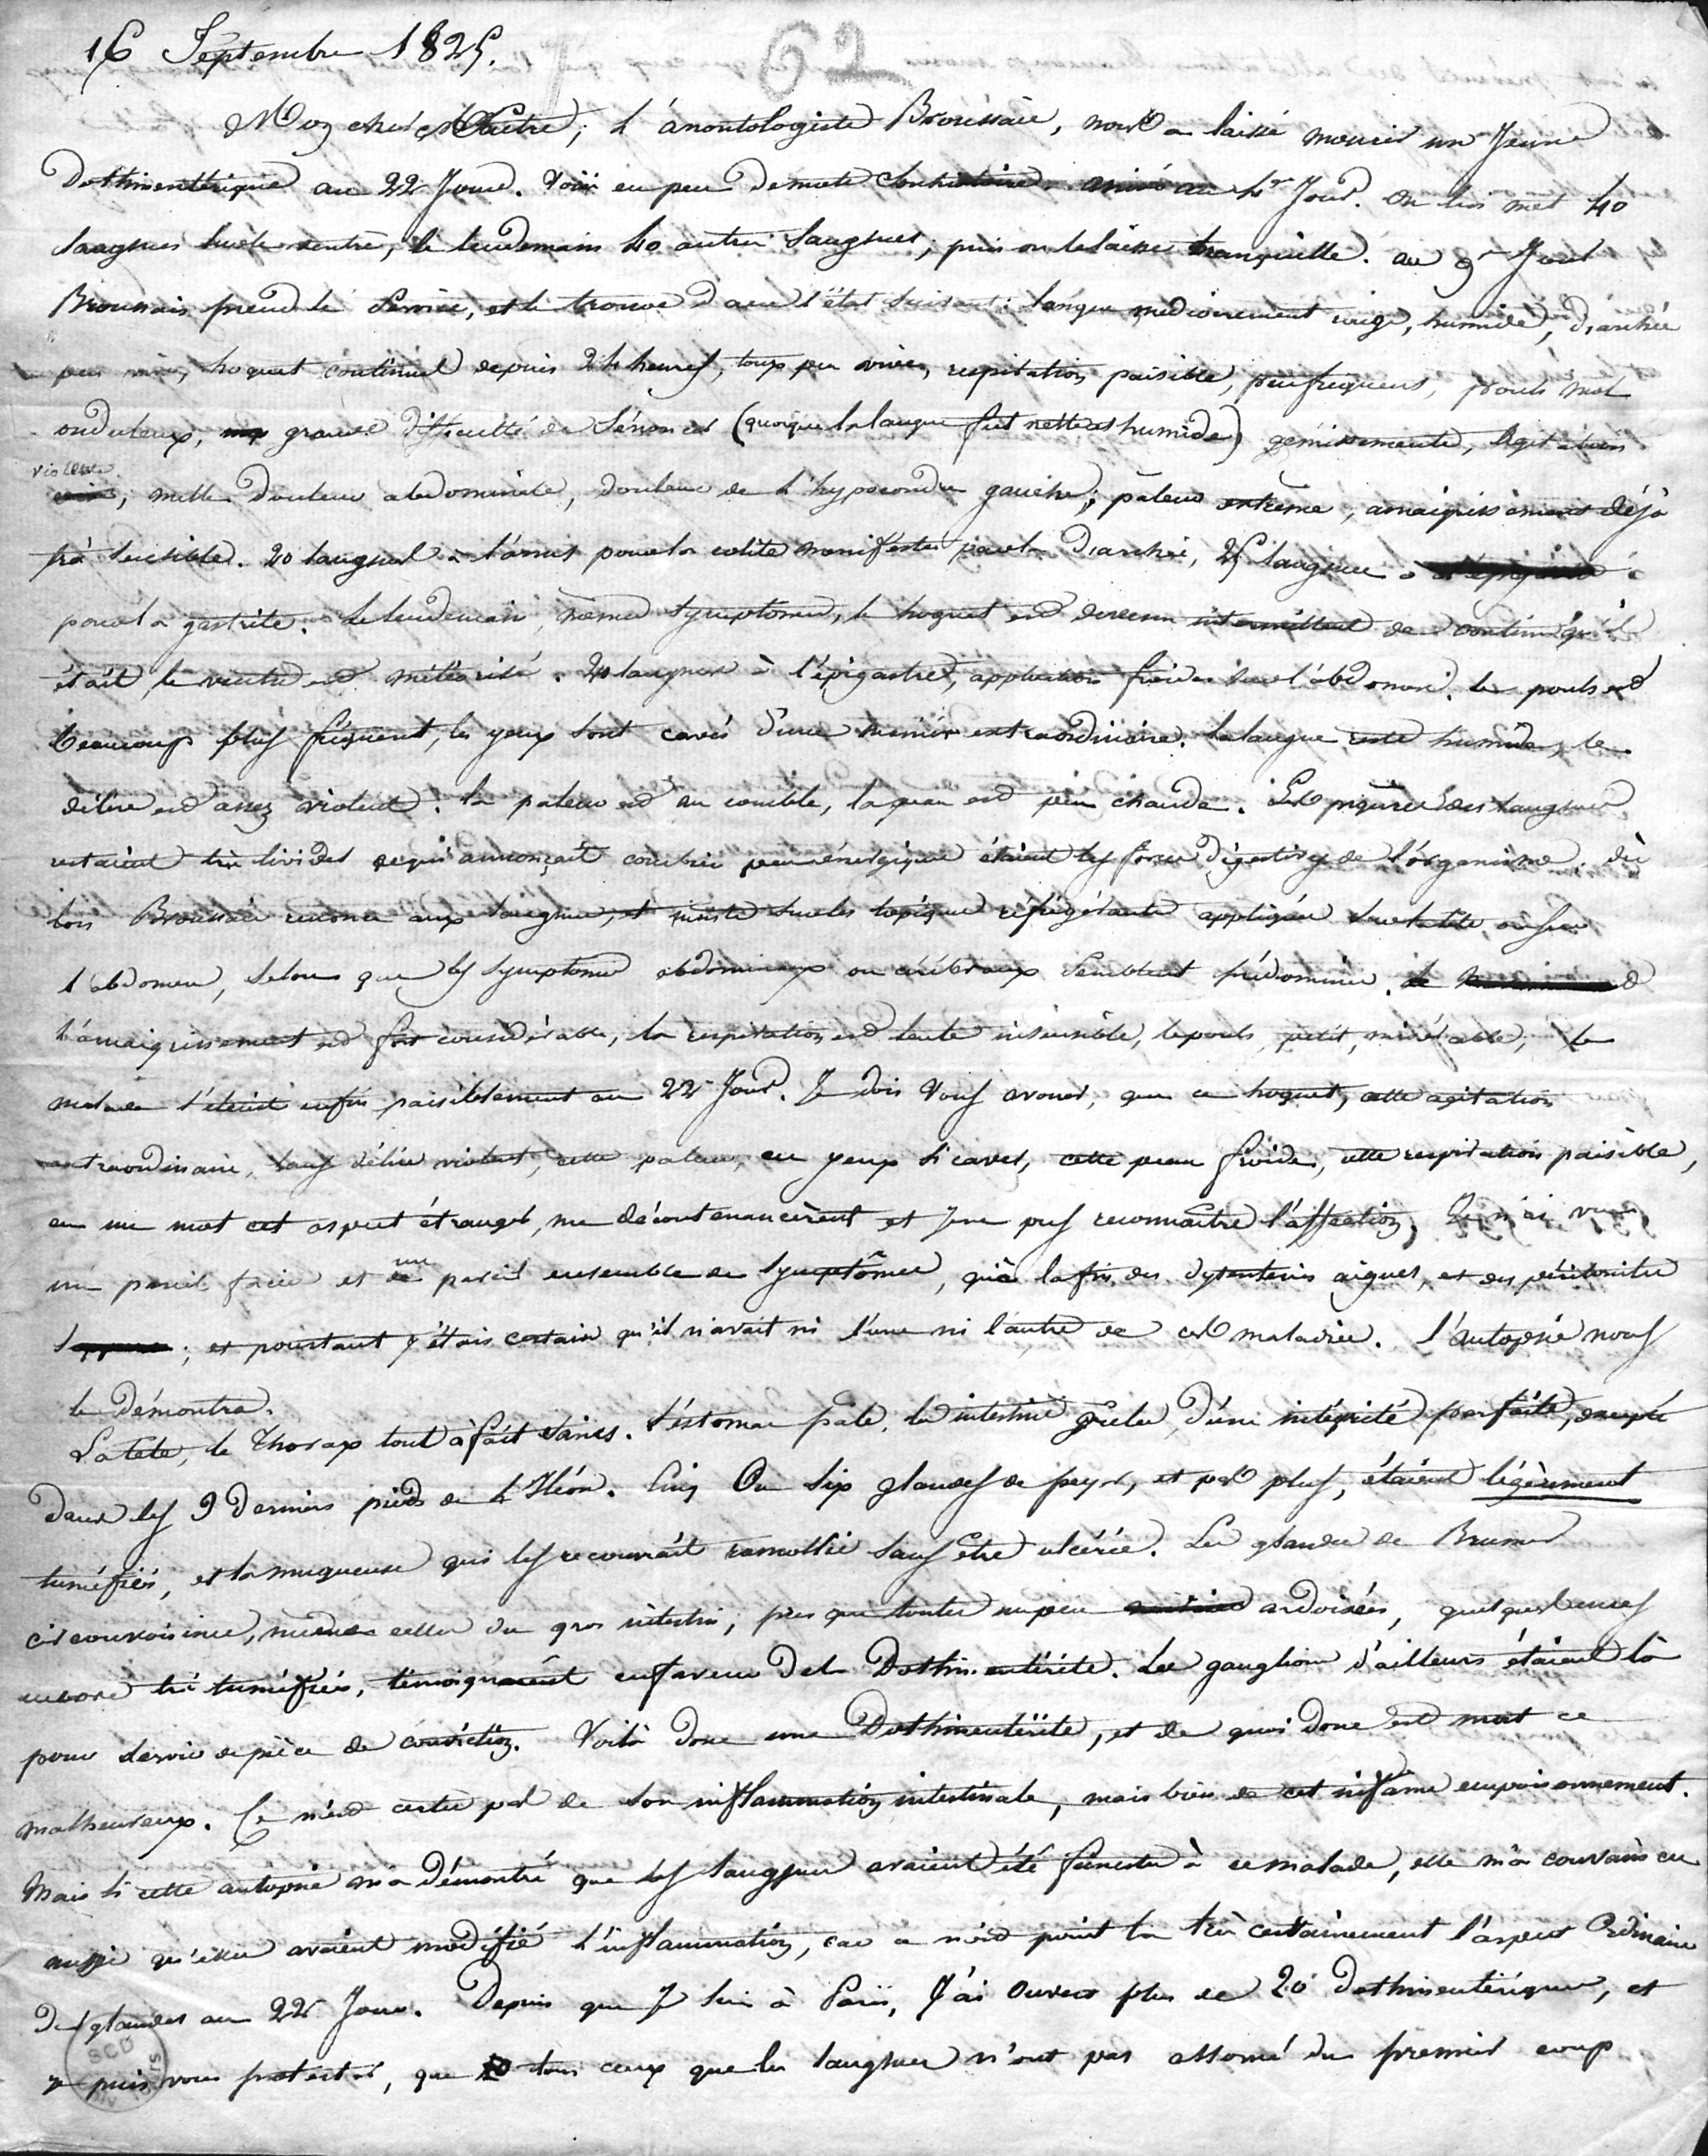 16 Septembre 1825.
62
Mon cher Maître, L'anontologiste Broussais, nous a laissé mourir un Jeune
Dothinentérique au 22e Jour. Voici en peu de mots l'histoire. arrivé au 4e Jour. On lui met 40
sangsues sur le ventre, le lendemain 40 autres sangsues, puis on le laisse tranquille. au 9e Jour
Broussais prend le service, et le trouve dans l'état suivant: langue médiocrement rouge, humide, diarrhée
peu vive, hoquet continuel depuis 24 heures, toux peu vive, respiration paisible, peu fréquente, pouls mol
onduleux, grande difficulté de s'énoncer (quoique la langue fut nette et humide) gémissements, agitation
violente, nulle douleur abdominale, douleur de l'hypocondre gauche, pâleur extrême, amaigrissement déjà
très sensible. 20 sangsues à l'anus pour la colite manifestée par la diarrhée, 25 sangsues à
pour la gastrite. Le lendemain, mêmes symptômes, le hoquet est devenu intermittent de continu qu'il
était, le ventre est météorisé. 20 sangsues à l'épigastre, applications froides sur l'abdomen. Le pouls est
beaucoup plus fréquent, les yeux sont cavés d'une manière extraordinaire. La langue reste humide, le
délire est assez violent. la pâleur est au comble, la peau est peu chaude. Les piqûres des sangsues
restaient très livides ce qui annonçait combien peu énergiques étaient les forces digestives de l'organisme. dès
lors Broussais renonce aux sangsues, et insiste sur les topiques réfrigérants appliqués sur la tête, ou sur
l'abdomen, selon que les symptômes abdominaux ou cérébraux semblent prédominer.
L'amaigrissement est fort considérable, la respiration est lente insensible, le pouls petit, misérable, le
malade s'éteint enfin paisiblement au 22e Jour. Je dois vous avouer, que ce hoquet, cette agitation
extraordinaire, sans délire violent, cette pâleur, ces yeux si caves, cette peau froide, cette respiration paisible,
en un mot cet aspect étrange, me décontenancèrent et je ne pus reconnaître l'affection, Je n'ai vu
un pareil facies et un pareil ensemble de symptômes, qu'à la fin des dysenteries aigues, et des péritonites
; et pourtant j'étais certain qu'il n'avait ni l'une ni l'autre de ces maladies. L'autopsie nous
le démontra.
La tête, le Thorax tout à fait sains. L'estomac pâle, les intestins grêles d'une intégrité parfaite, excepté
dans les 9 derniers pieds de l'Iléon. Cinq ou six glandes de peyer, et pas plus, étaient légèrement
tuméfiées, et la muqueuse qui les recouvrait ramollie sans être ulcérée. Les glandes de Brunner
circonvoisines, même celles du gros intestin, presque toutes un peu ardoisées, quelques unes
encore très tuméfiées, témoignaient en faveur de la Dothinentérite. Les ganglions d'ailleurs étaient là
pour servir de pièce de conviction. Voilà donc une Dothinentérite, et de quoi donc est mort ce
malheureux. Ce n'est certes pas de son inflammation intestinale, mais bien de cet infâme empoisonnement.
Mais si cette autopsie m'a démontré que les sangsues avaient été funestes à ce malade, elle m'a convaincu
aussi qu'elles avaient modifié l'inflammation, car ce n'est point là très certainement l'aspect ordinaire
des glandes au 22e Jour. Depuis que Je suis à Paris, J'ai ouvert plus de 20 dothinentériques, et
je puis vous protester, que tous ceux que les sangsues n'ont pas assomé du premier coup
SCD